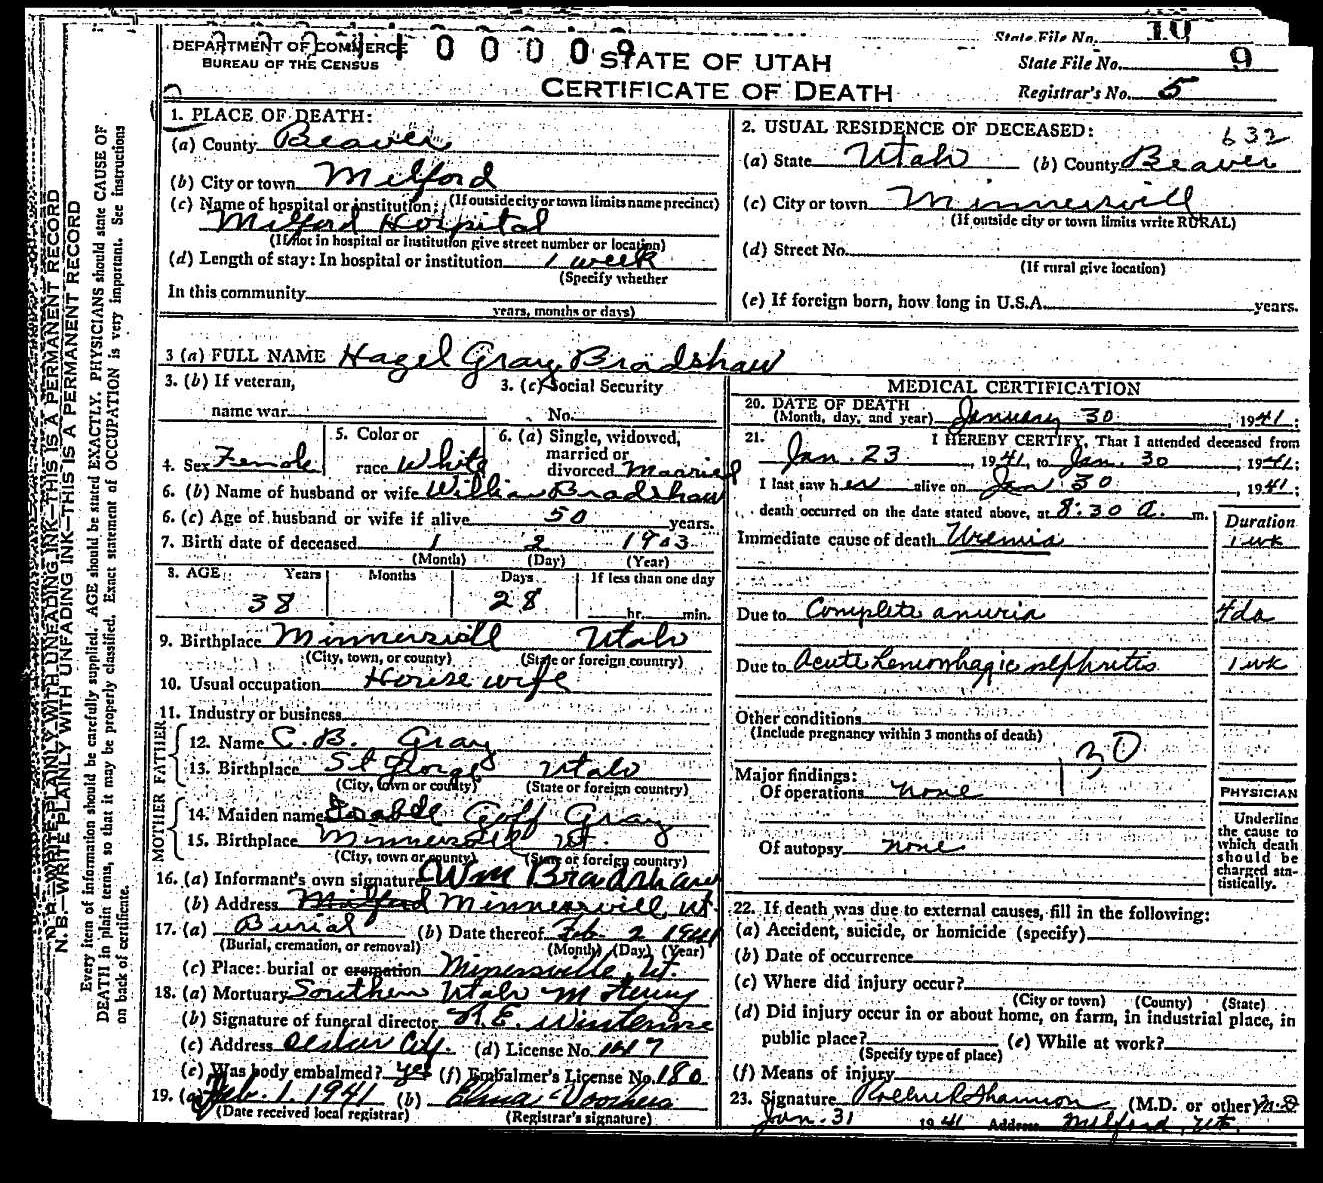 State File No. 10
DEPARTMENT OF COMMERCE
BUREAU OF THE CENSUS
10000 9
STATE OF UTAH
CERTIFICATE OF DEATH
State File No. 9
Registrar's No. 5
1. PLACE OF DEATH:
(a) County Beaver
(b) City or town Milford
(If outside city or town limits name precinct)
(c) Name of hospital or institution:
Milford Hospital
(If not in hospital or institution give street number or location)
(d) Length of stay: In hospital or institution 1 week
(Specify whether
In this community
years, months or days)
2. USUAL RESIDENCE OF DECEASED: 632
(a) State Utah (b) County Beaver
(c) City or town Minnersvill
(If outside city or town limits write RURAL)
(d) Street No.
(If rural give location)
(e) If foreign born, how long in U.S.A. years.
3 (a) FULL NAME Hazel Gray Bradshaw
3. (b) If veteran, name war
3. (c) Social Security No.
4. Sex Female
5. Color or race White
6. (a) Single, widowed, married or divorced Married
6. (b) Name of husband or wife William Bradshaw
6. (c) Age of husband or wife if alive 50 years.
7. Birth date of deceased 1 2 1903
(Month) (Day) (Year)
8. AGE Years Months Days If less than one day
38 28 hr. min.
9. Birthplace Minnersvill Utah
(City, town, or county) (State or foreign country)
10. Usual occupation House wife
11. Industry or business
FATHER
12. Name C. B. Gray
13. Birthplace St George Utah
(City, town or county) (State or foreign country)
MOTHER
14. Maiden name Isabel Goff Gray
15. Birthplace Minnersvill Ut.
(City, town or county) (State or foreign country)
16. (a) Informant's own signature Wm Bradshaw
(b) Address Milford Minnersvill Ut.
17. (a) Burial (b) Date thereof Feb. 2 1941
(Burial, cremation, or removal) (Month) (Day) (Year)
(c) Place: burial or cremation Minersville, Ut.
18. (a) Mortuary Southern Utah Mortuary
(b) Signature of funeral director
(c) Address Cedar City. (d) License No. 147
(e) Was body embalmed? yes (f) Embalmer's License No. 180
19. (a) Feb. 1. 1941 (b)
(Date received local registrar) (Registrar's signature)
MEDICAL CERTIFICATION
20. DATE OF DEATH
(Month, day, and year) January 30, 1941;
21. I HEREBY CERTIFY, That I attended deceased from
Jan. 23, 1941, to Jan. 30, 1941;
I last saw her alive on Jan 30, 1941;
death occurred on the date stated above, at 8:30 a. m.
Duration
Immediate cause of death Uremia 1 wk
Due to Complete anuria 4 da
Due to Acute hemorrhagic nephritis 1 wk
Other conditions
(Include pregnancy within 3 months of death)
130
Major findings:
Of operations none
Of autopsy none
PHYSICIAN
Underline
the cause to
which death
should be
charged sta-
tistically.
22. If death was due to external causes, fill in the following:
(a) Accident, suicide, or homicide (specify)
(b) Date of occurrence
(c) Where did injury occur?
(City or town) (County) (State)
(d) Did injury occur in or about home, on farm, in industrial place, in
public place? (e) While at work?
(Specify type of place)
(f) Means of injury
23. Signature Shannon (M.D. or other) M.D
Jan. 31 1941 Address Milford, Ut.
N. B.—WRITE PLAINLY WITH UNFADING INK—THIS IS A PERMANENT RECORD
N. B.—WRITE PLAINLY WITH UNFADING INK—THIS IS A PERMANENT RECORD
Every item of information should be carefully supplied. AGE should be stated EXACTLY. PHYSICIANS should state CAUSE OF
DEATH in plain terms, so that it may be properly classified. Exact statement of OCCUPATION is very important. See instructions
on back of certificate.